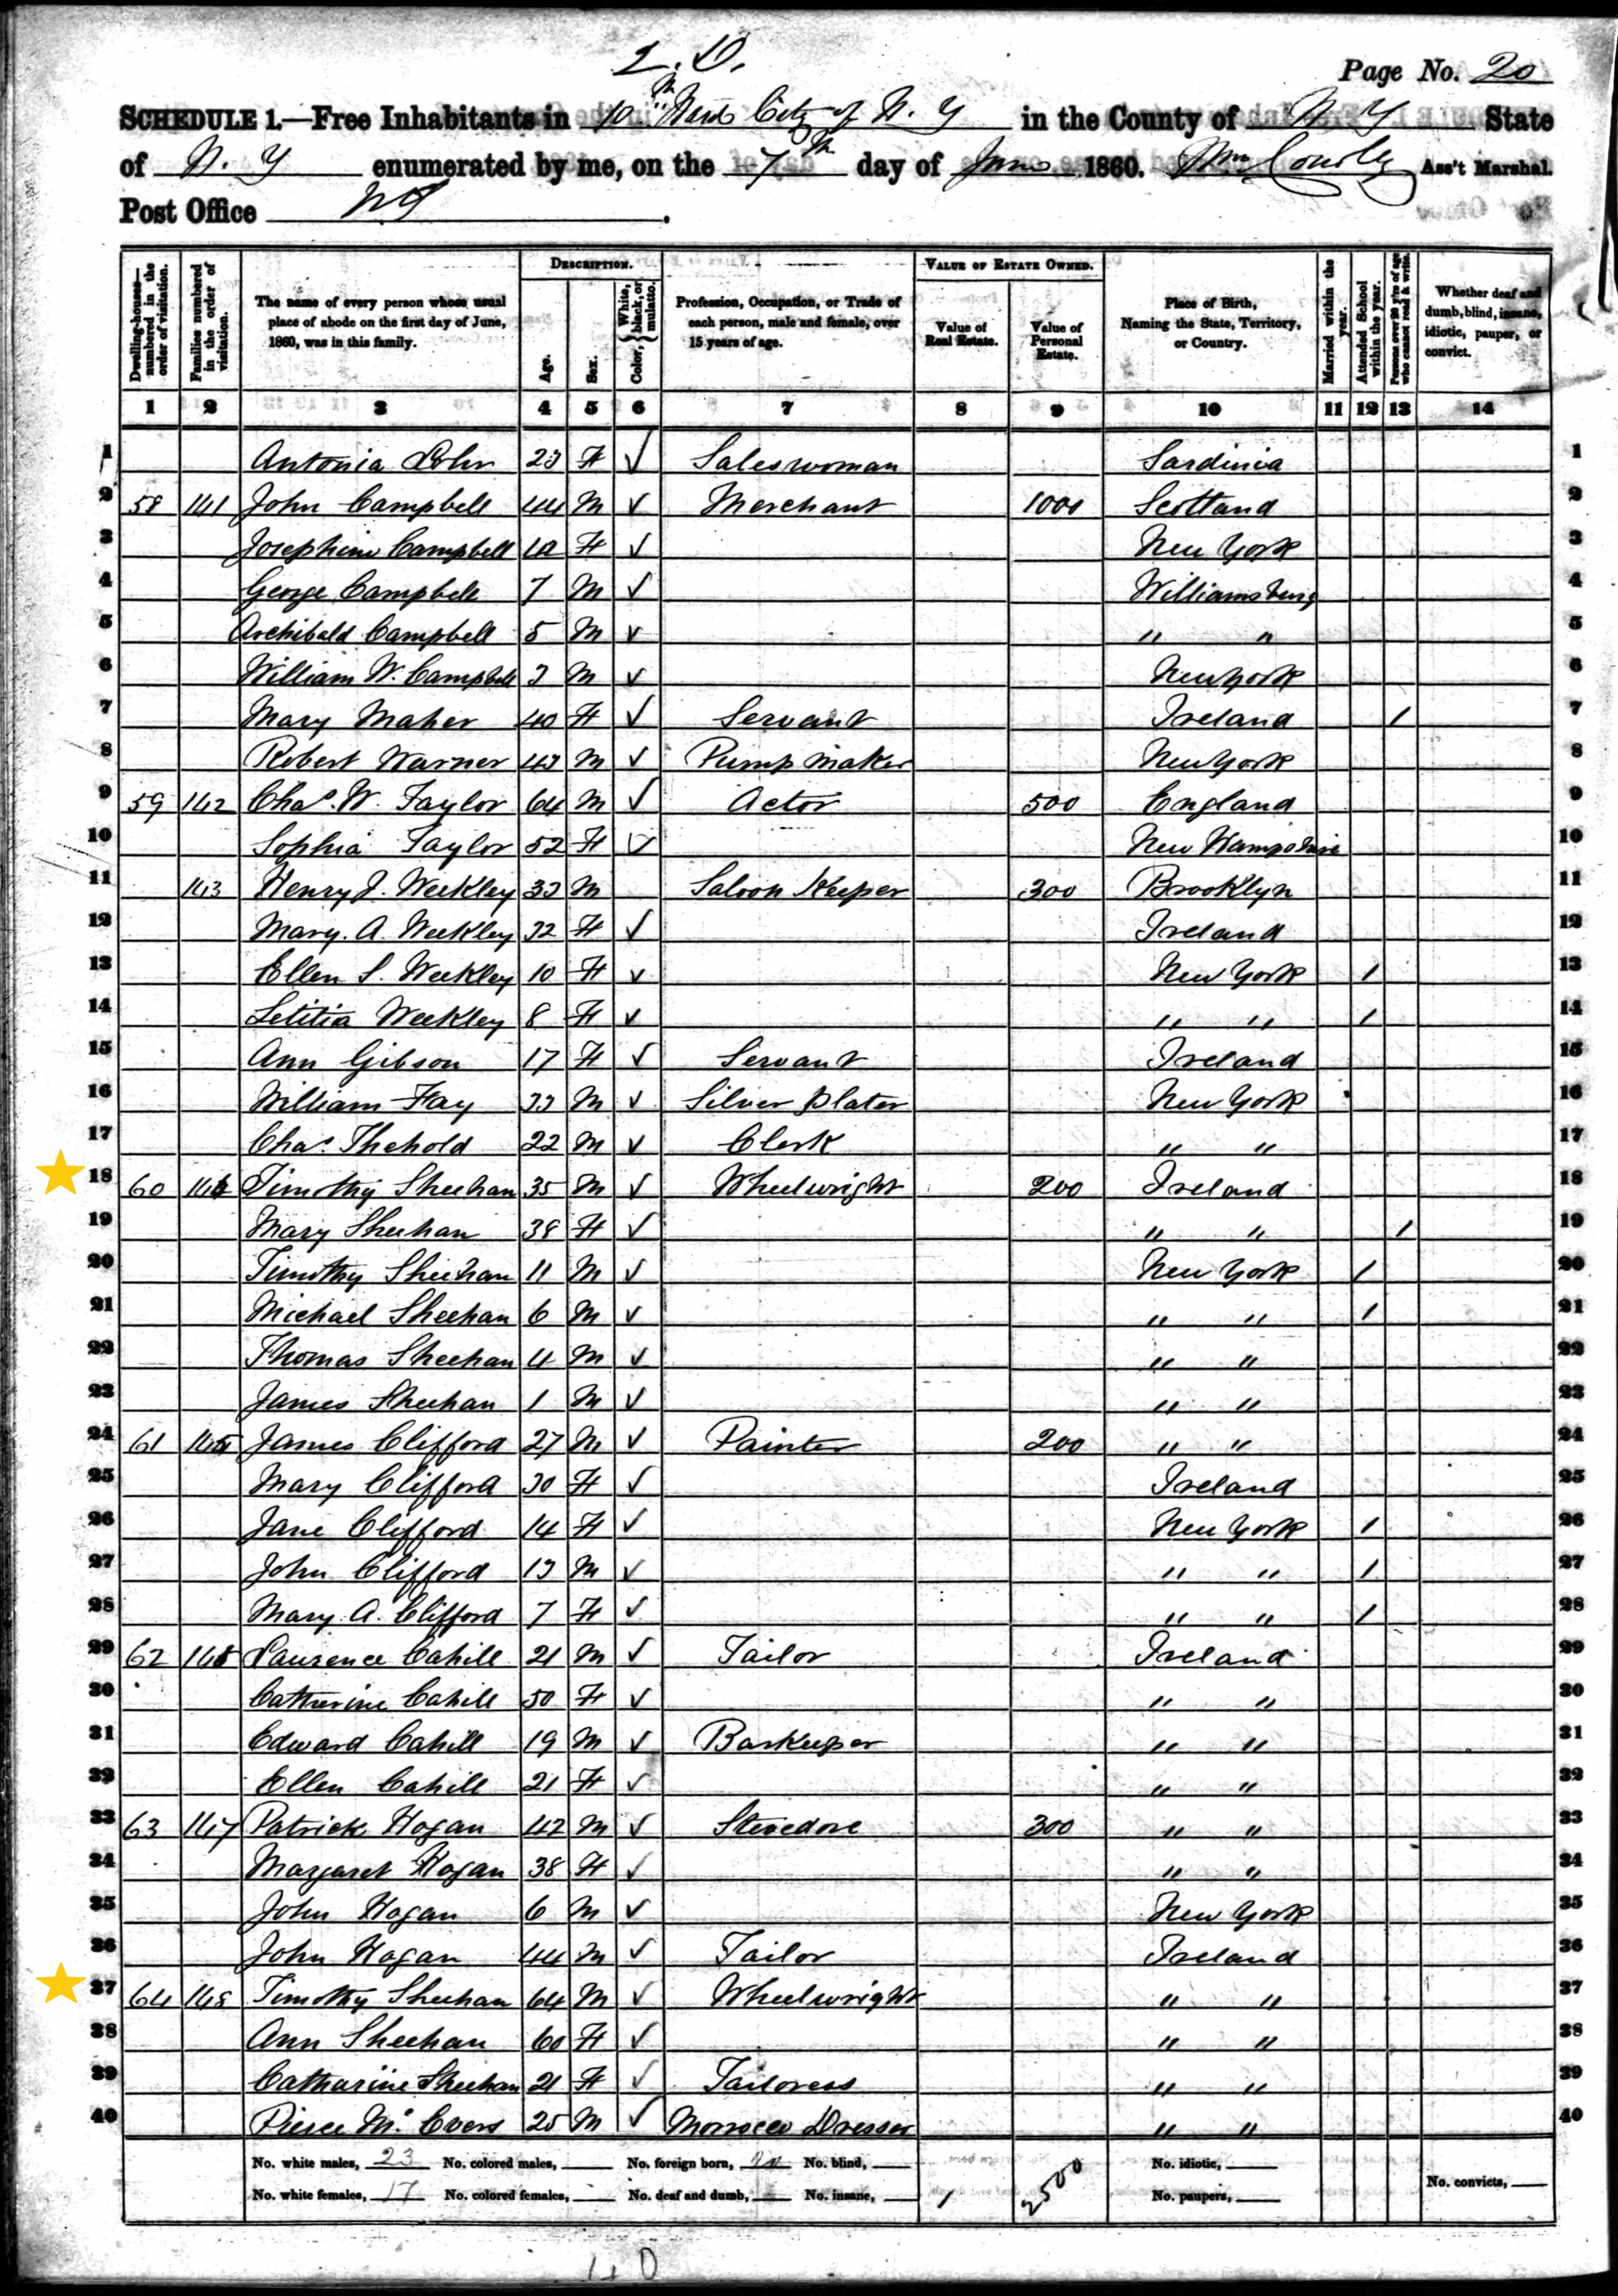 2. D.
Page No. 20
SCHEDULE 1.—Free Inhabitants in 10th Ward City of N. Y in the County of N. Y State
of N. Y enumerated by me, on the 7th day of June 1860. Wm Ass't Marshal.
Post Office NY.
Dwelling-houses—numbered in the order of visitation.
Families numbered in the order of visitation.
The name of every person whose usual place of abode on the first day of June, 1860, was in this family.
DESCRIPTION.
Age.
Sex.
Color, { White, black, or mulatto.
Profession, Occupation, or Trade of each person, male and female, over 15 years of age.
VALUE OF ESTATE OWNED.
Value of Real Estate.
Value of Personal Estate.
Place of Birth, Naming the State, Territory, or Country.
Married within the year.
Attended School within the year.
Persons over 20 y'rs of age who cannot read & write.
Whether deaf and dumb, blind, insane, idiotic, pauper, or convict.
1 2 3 4 5 6 7 8 9 10 11 12 13 14
1 Antonia 23 F ✓ Saleswoman Sardinia 1
2 58 141 John Campbell 44 M ✓ Merchant 1000 Scotland 2
3 Josephine Campbell 10 F ✓ New York 3
4 George Campbell 7 M ✓ Williamsburg 4
5 Archibald Campbell 5 M ✓ " " 5
6 William W. Campbell 3 M ✓ New York 6
7 Mary Maher 40 F ✓ Servant Ireland / 7
8 Robert Warner 43 M ✓ Pump Maker New York 8
9 59 142 Chas. W. Taylor 64 M ✓ Actor 500 England 9
10 Sophia Taylor 52 F ✓ New Hampshire 10
11 143 Henry J. Weekley 33 M Saloon Keeper 300 Brooklyn 11
12 Mary. A. Weekley 32 F ✓ Ireland 12
13 Ellen S. Weekley 10 F ✓ New York / 13
14 Letitia Weekley 8 F ✓ " " / 14
15 Ann Gibson 17 F ✓ Servant Ireland 15
16 William Fay 33 M ✓ Silver Plater New York 16
17 Chas. Thehold 22 M ✓ Clerk " " 17
18 60 144 Timothy Sheehan 35 M ✓ Wheelwright 200 Ireland 18
19 Mary Sheehan 38 F ✓ " " / 19
20 Timothy Sheehan 11 M ✓ New York / 20
21 Michael Sheehan 6 M ✓ " " / 21
22 Thomas Sheehan 4 M ✓ " " 22
23 James Sheehan 1 M ✓ " " 23
24 61 145 James Clifford 27 M ✓ Painter 200 " " 24
25 Mary Clifford 30 F ✓ Ireland 25
26 Jane Clifford 14 F ✓ New York / 26
27 John Clifford 13 M ✓ " " / 27
28 Mary. A. Clifford 7 F ✓ " " / 28
29 62 146 Laurence Cahill 21 M ✓ Tailor Ireland 29
30 Catherine Cahill 50 F ✓ " " 30
31 Edward Cahill 19 M ✓ Barkeeper " " 31
32 Ellen Cahill 21 F ✓ " " 32
33 63 147 Patrick Hogan 42 M ✓ Stevedore 300 " " 33
34 Margaret Hogan 38 F ✓ " " 34
35 John Hogan 6 M ✓ New York 35
36 John Hogan 44 M ✓ Tailor Ireland 36
37 64 148 Timothy Sheehan 64 M ✓ Wheelwright " " 37
38 Ann Sheehan 60 F ✓ " " 38
39 Catharine Sheehan 21 F ✓ Tailoress " " 39
40 Pierce Mc Evers 25 M ✓ Morocco Dresser " " 40
No. white males, 23 No. colored males, No. foreign born, 20 No. blind, No. idiotic,
No. white females, 17 No. colored females, No. deaf and dumb, No. insane, / 2500 No. paupers, No. convicts,
40